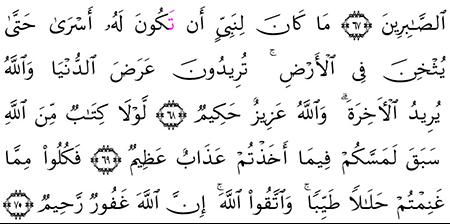 ٱلصَّـٰبِرِينَ ﴿٦٧﴾ مَا كَانَ لِنَبِىٍّ أَن تَكُونَ لَهُۥٓ أَسْرَىٰ حَتَّىٰ
يُثْخِنَ فِى ٱلْأَرْضِ ۚ تُرِيدُونَ عَرَضَ ٱلدُّنْيَا وَٱللَّهُ
يُرِيدُ ٱلْـَٔاخِرَةَ ۗ وَٱللَّهُ عَزِيزٌ حَكِيمٌ ﴿٦٨﴾ لَّوْلَا كِتَـٰبٌ مِّنَ ٱللَّهِ
سَبَقَ لَمَسَّكُمْ فِيمَآ أَخَذْتُمْ عَذَابٌ عَظِيمٌ ﴿٦٩﴾ فَكُلُوا۟ مِمَّا
غَنِمْتُمْ حَلَـٰلًا طَيِّبًا ۚ وَٱتَّقُوا۟ ٱللَّهَ ۚ إِنَّ ٱللَّهَ غَفُورٌ رَّحِيمٌ ﴿٧٠﴾